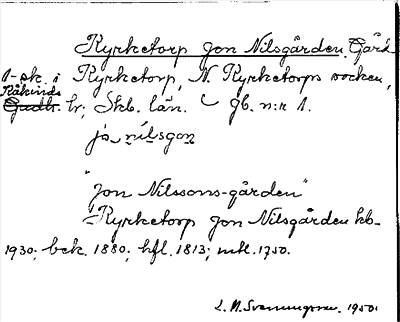 Kyrketorp Jon Nilsgården. Gård
1-sk. i Kyrketorp, N. Kyrketorps socken,
Kåkinds
Gudh. hr, Skb. län. gb. n:r 1.
jo nilsgon
"Jon Nilssons-gården"
Kyrketorp Jon Nilsgården kb.
1930; bek. 1880; hfl. 1813; mtl. 1750.
L. M. Svanungsson. 1950.